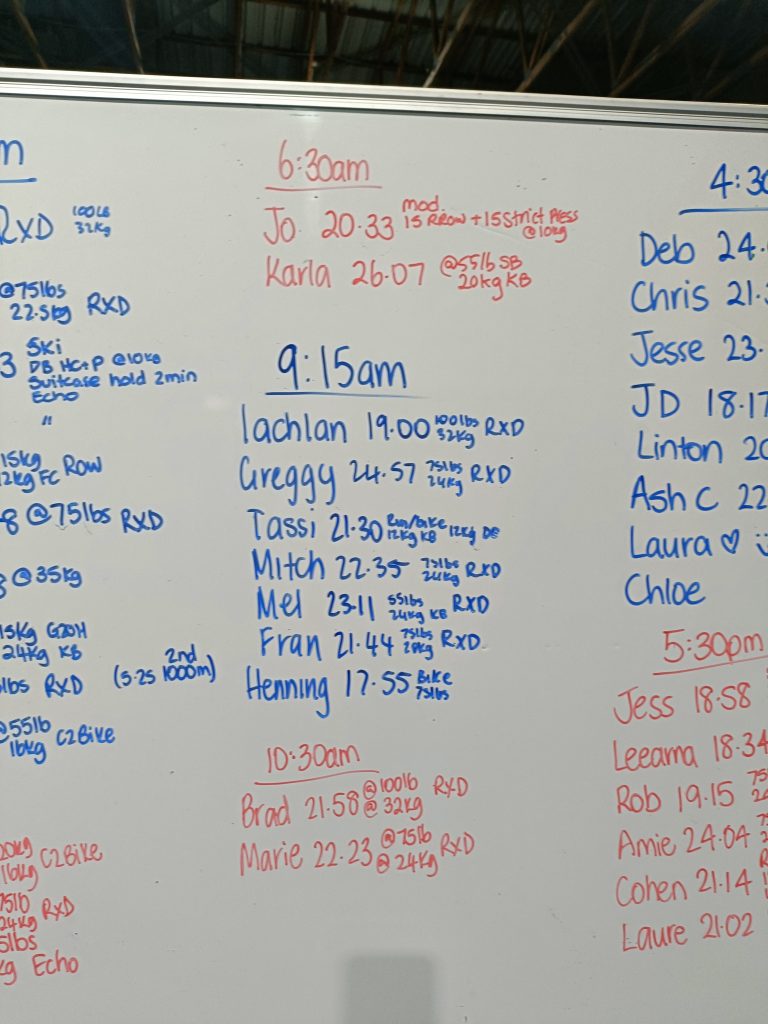 RXD 100LB
32kg
@75lbs
22.5kg RXD
3 Ski
DB HC+P @10kg
Suitcase hold 2min
Echo
"
15kg
12kg FC Row
8 @75lbs RXD
@35kg
15kg G2OH
24kg KB
lbs RXD (5.25 2nd 1000m)
@55lb
16kg C2Bike
20kg
16kg C2Bike
75lb
24kg RXD
5lbs
kg Echo
6:30am
Jo 20.33 mod.
15 RROW + 15 Strict Press
@10kg
Karla 26.07 @55lb SB
20kg KB
9:15am
lachlan 19.00 100lbs
32kg RXD
Greggy 24.57 75lbs
24kg RXD
Tassi 21.30 Run/bike
12kg KB 12kg DB
Mitch 22.35 75lbs
24kg RXD
Mel 23.11 55lbs
24kg KB RXD
Fran 21.44 75lbs
RXD
Henning 17.55 Bike
75lbs
10:30am
Brad 21.58 @100lb
@ 32kg RXD
Marie 22.23 @75lb
@ 24kg RXD
4:30
Deb 24.
Chris 21.
Jesse 23.
JD 18.17
Linton 20
Ash C 22
Laura ♡
Chloe
5:30pm
Jess 18.58
Leeama 18.34
Rob 19.15
Amie 24.04
Cohen 21.14
Laure 21.02